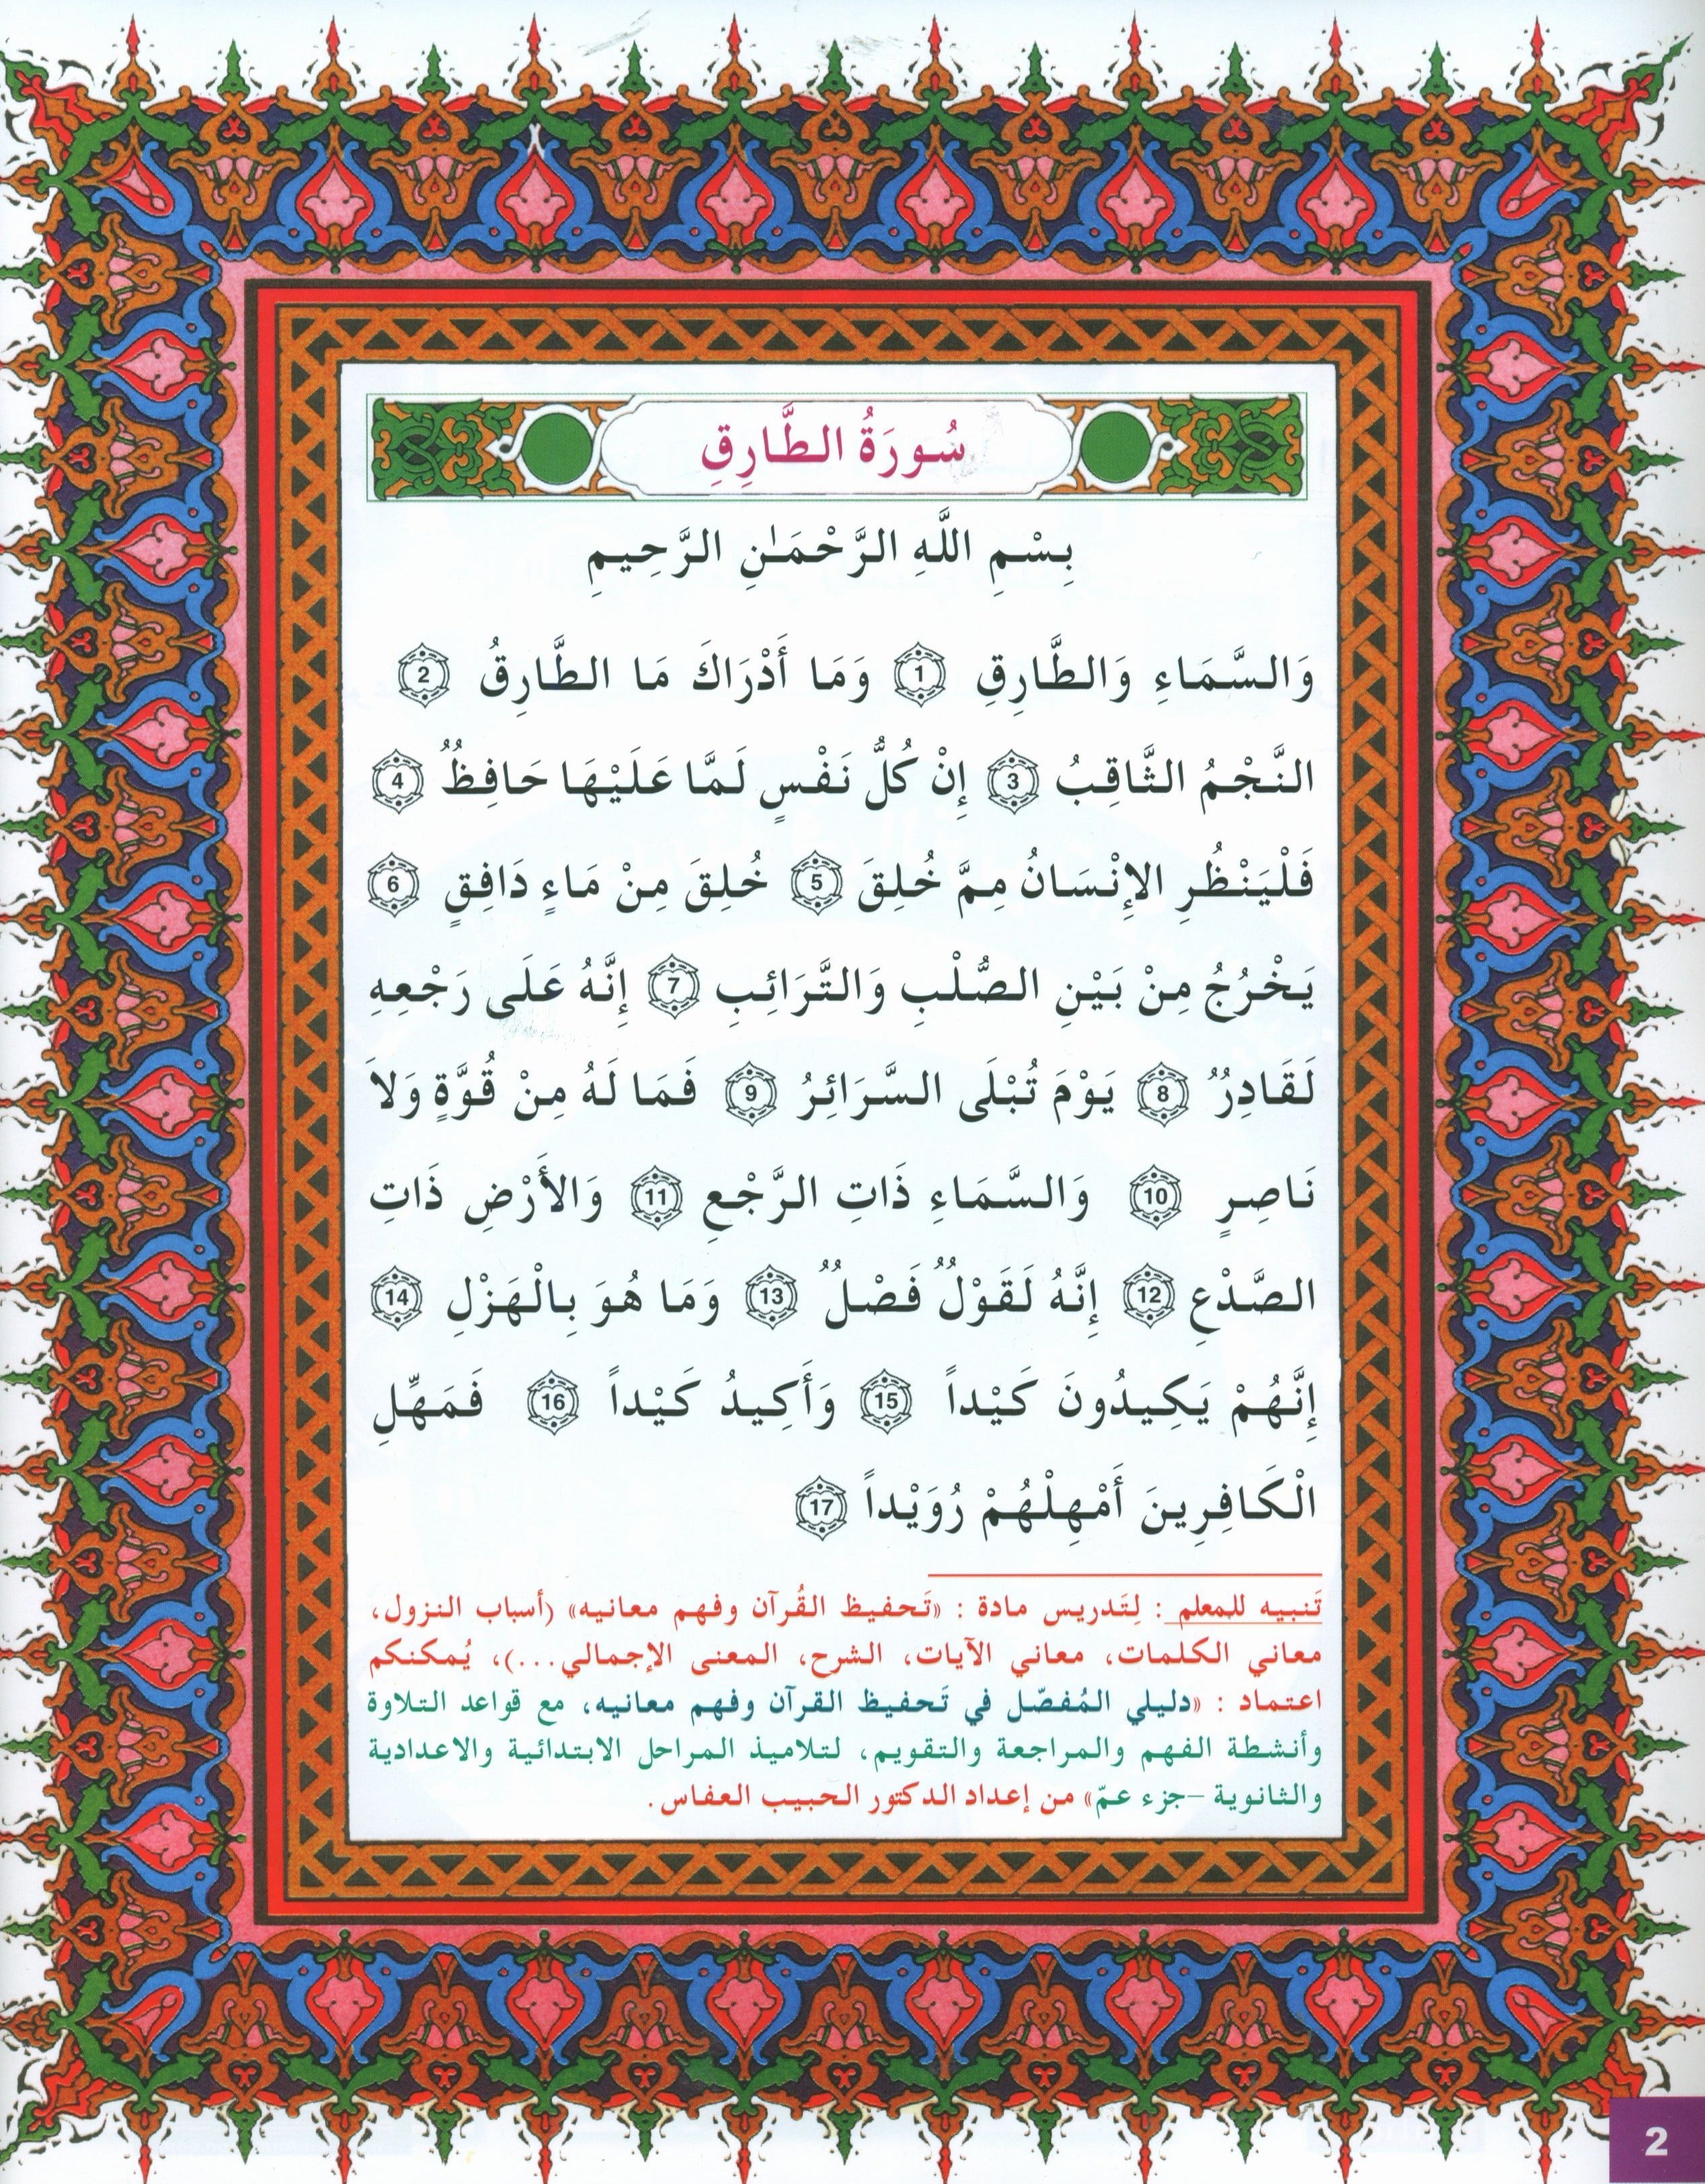 سُورَةُ الطَّارِقِ
بِسْمِ اللَّهِ الرَّحْمَٰنِ الرَّحِيمِ
وَالسَّمَاءِ وَالطَّارِقِ 1 وَمَا أَدْرَاكَ مَا الطَّارِقُ 2
النَّجْمُ الثَّاقِبُ 3 إِنْ كُلُّ نَفْسٍ لَمَّا عَلَيْهَا حَافِظٌ 4
فَلْيَنْظُرِ الإِنْسَانُ مِمَّ خُلِقَ 5 خُلِقَ مِنْ مَاءٍ دَافِقٍ 6
يَخْرُجُ مِنْ بَيْنِ الصُّلْبِ وَالتَّرَائِبِ 7 إِنَّهُ عَلَى رَجْعِهِ
لَقَادِرٌ 8 يَوْمَ تُبْلَى السَّرَائِرُ 9 فَمَا لَهُ مِنْ قُوَّةٍ وَلاَ
نَاصِرٍ 10 وَالسَّمَاءِ ذَاتِ الرَّجْعِ 11 وَالأَرْضِ ذَاتِ
الصَّدْعِ 12 إِنَّهُ لَقَوْلٌ فَصْلٌ 13 وَمَا هُوَ بِالْهَزْلِ 14
إِنَّهُمْ يَكِيدُونَ كَيْداً 15 وَأَكِيدُ كَيْداً 16 فَمَهِّلِ
الْكَافِرِينَ أَمْهِلْهُمْ رُوَيْداً 17
تَنبيه للمعلم : لِتَدريس مادة : «تَحفيظ القُرآن وفهم معانيه» (أسباب النزول،
معاني الكلمات، معاني الآيات، الشرح، المعنى الإجمالي...)، يُمكنكم
اعتماد : «دليلي المُفصّل في تَحفيظ القرآن وفهم معانيه، مع قواعد التلاوة
وأنشطة الفهم والمراجعة والتقويم، لتلاميذ المراحل الابتدائية والاعدادية
والثانوية -جزء عمّ» من إعداد الدكتور الحبيب العفاس.
2